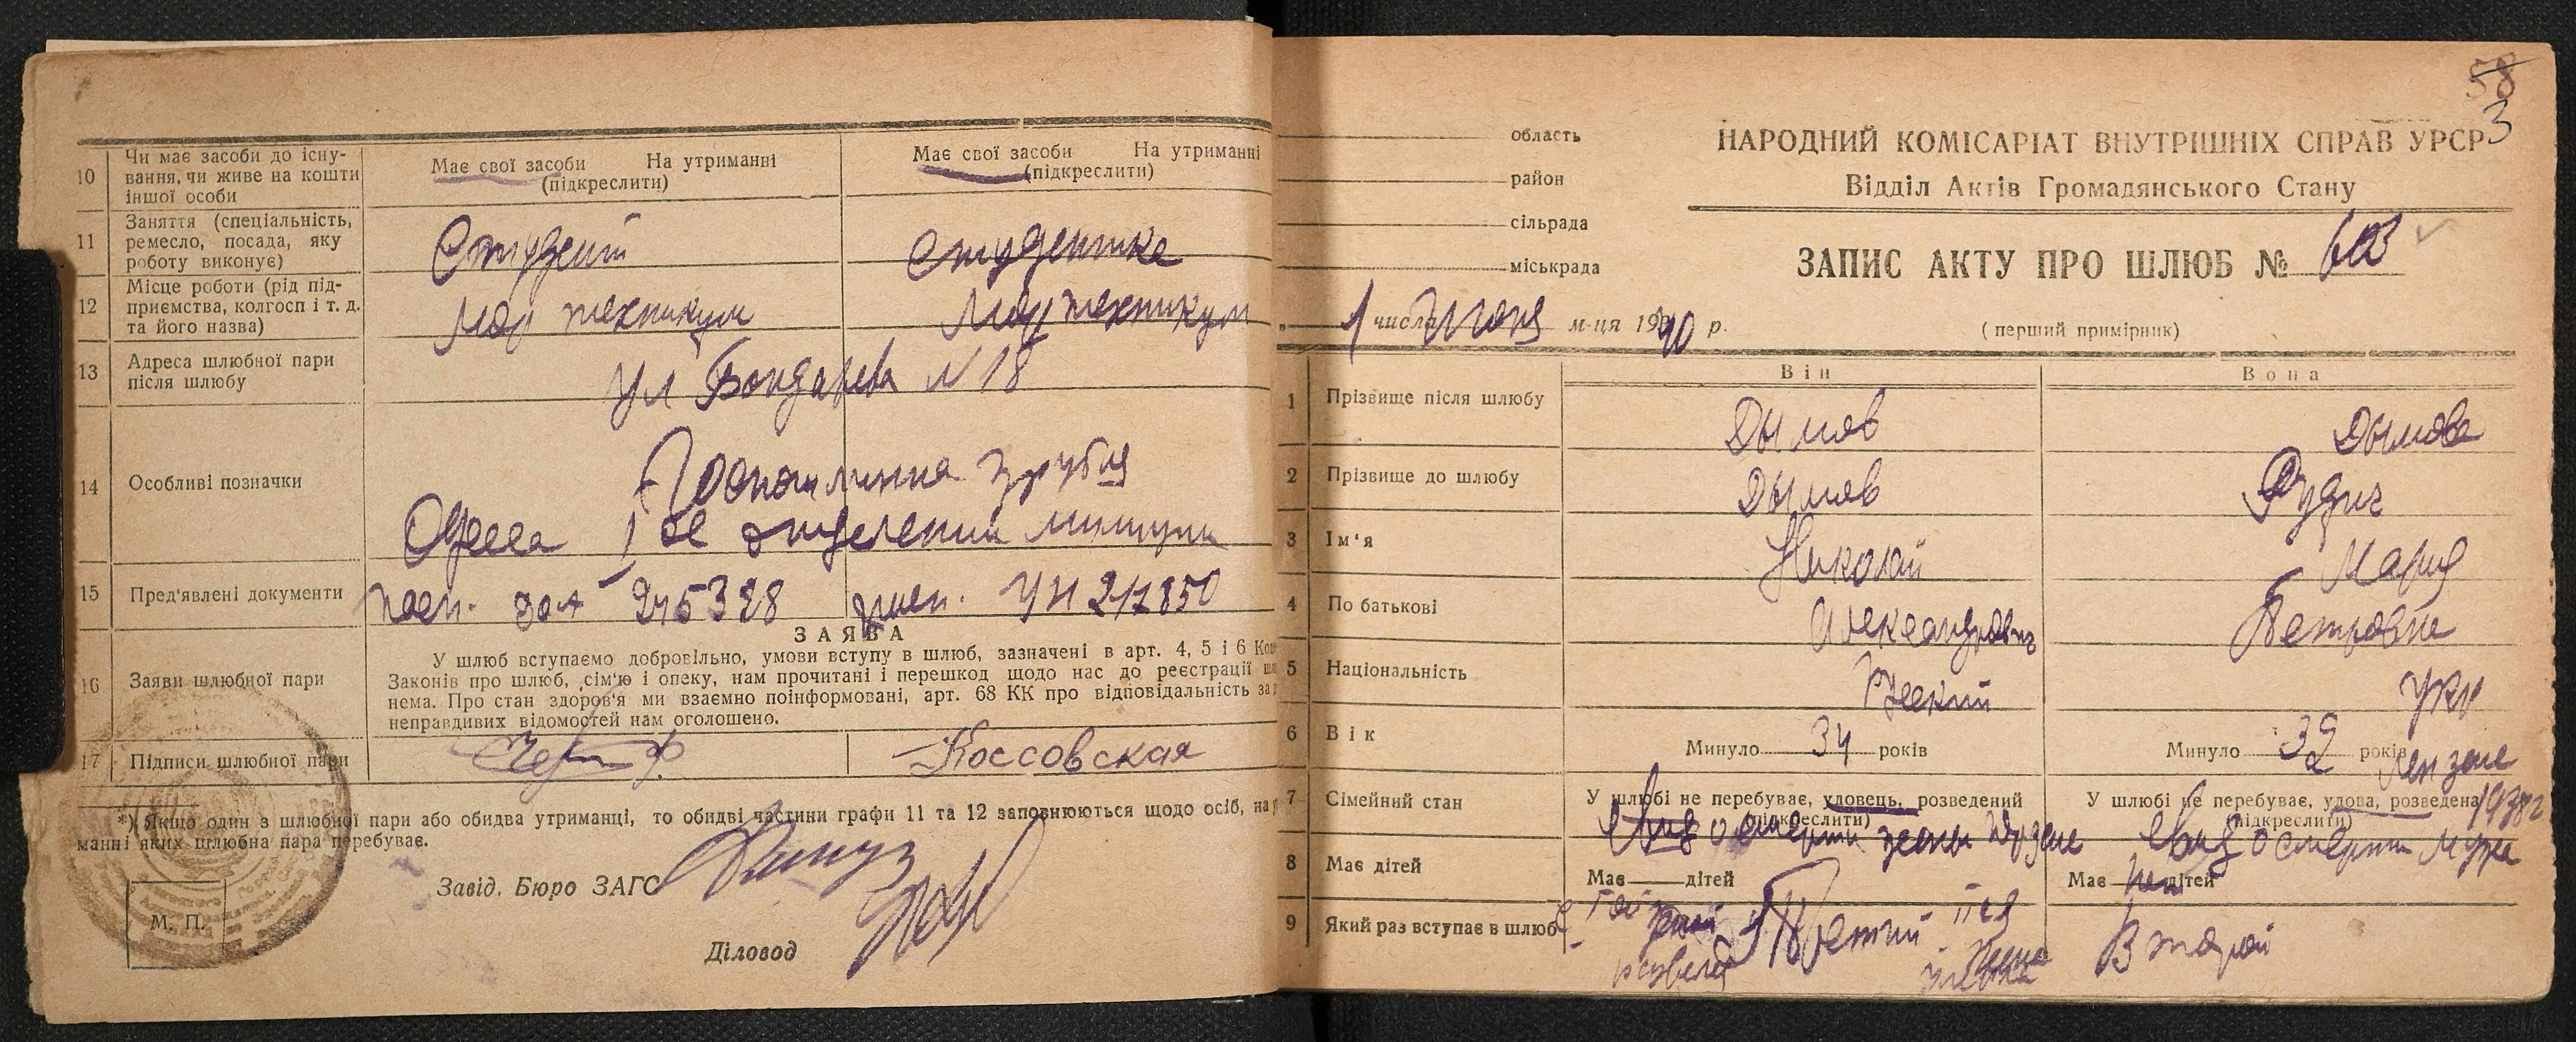 10 Чи має засоби до існу-
вання, чи живе на кошти
іншої особи
Має свої засоби На утриманні
(підкреслити)
Має свої засоби На утриманні
(підкреслити)
11 Заняття (спеціальність,
ремесло, посада, яку
роботу виконує)
Студент
студентка
12 Місце роботи (рід під-
приємства, колгосп і т. д.
та його назва)
Мор техникум
Мор техникум
13 Адреса шлюбної пари
після шлюбу
Ул Бондарева N 18
14 Особливі позначки
Госпошлина 3 рубля
Одесса 1 ое отделении милиции
15 Пред'явлені документи
245328
УН
ЗАЯВА
16 Заяви шлюбної пари
У шлюб вступаємо добровільно, умови вступу в шлюб, зазначені в арт. 4, 5 і 6
Законів про шлюб, сім'ю і опеку, нам прочитані і перешкод щодо нас до реєстрації
нема. Про стан здоров'я ми взаємно поінформовані, арт. 68 КК про відповідальність за
неправдивих відомостей нам оголошено.
17 Підписи шлюбної пари
Коссовская
*) Якщо один з шлюбної пари або обидва утриманці, то обидві частини графи 11 та 12 заповнюються щодо осіб, на
манні яких шлюбна пара перебуває.
Завід. Бюро ЗАГС
М. П.
Діловод
58
3
область
район
сільрада
міськрада
НАРОДНИЙ КОМІСАРІАТ ВНУТРІШНІХ СПРАВ УРСР
Відділ Актів Громадянського Стану
ЗАПИС АКТУ ПРО ШЛЮБ №
„ 1 числа м-ця 1940 р.
(перший примірник)
Він Вона
1 Прізвище після шлюбу Дымов Дымова
2 Прізвище до шлюбу Дымов Рудич
3 Ім'я Николай Мария
4 По батькові Александрович Петровна
5 Національність Русский укр
6 Вік Минуло 34 років Минуло 32 років
7 Сімейний стан
У шлюбі не перебуває, удовець, розведений
(підкреслити)
У шлюбі не перебуває, удова, розведена
(підкреслити)
о смерти жены
о смерти мужа
8 Має дітей Має дітей Має нет дітей
9 Який раз вступає в шлюб Третий Второй